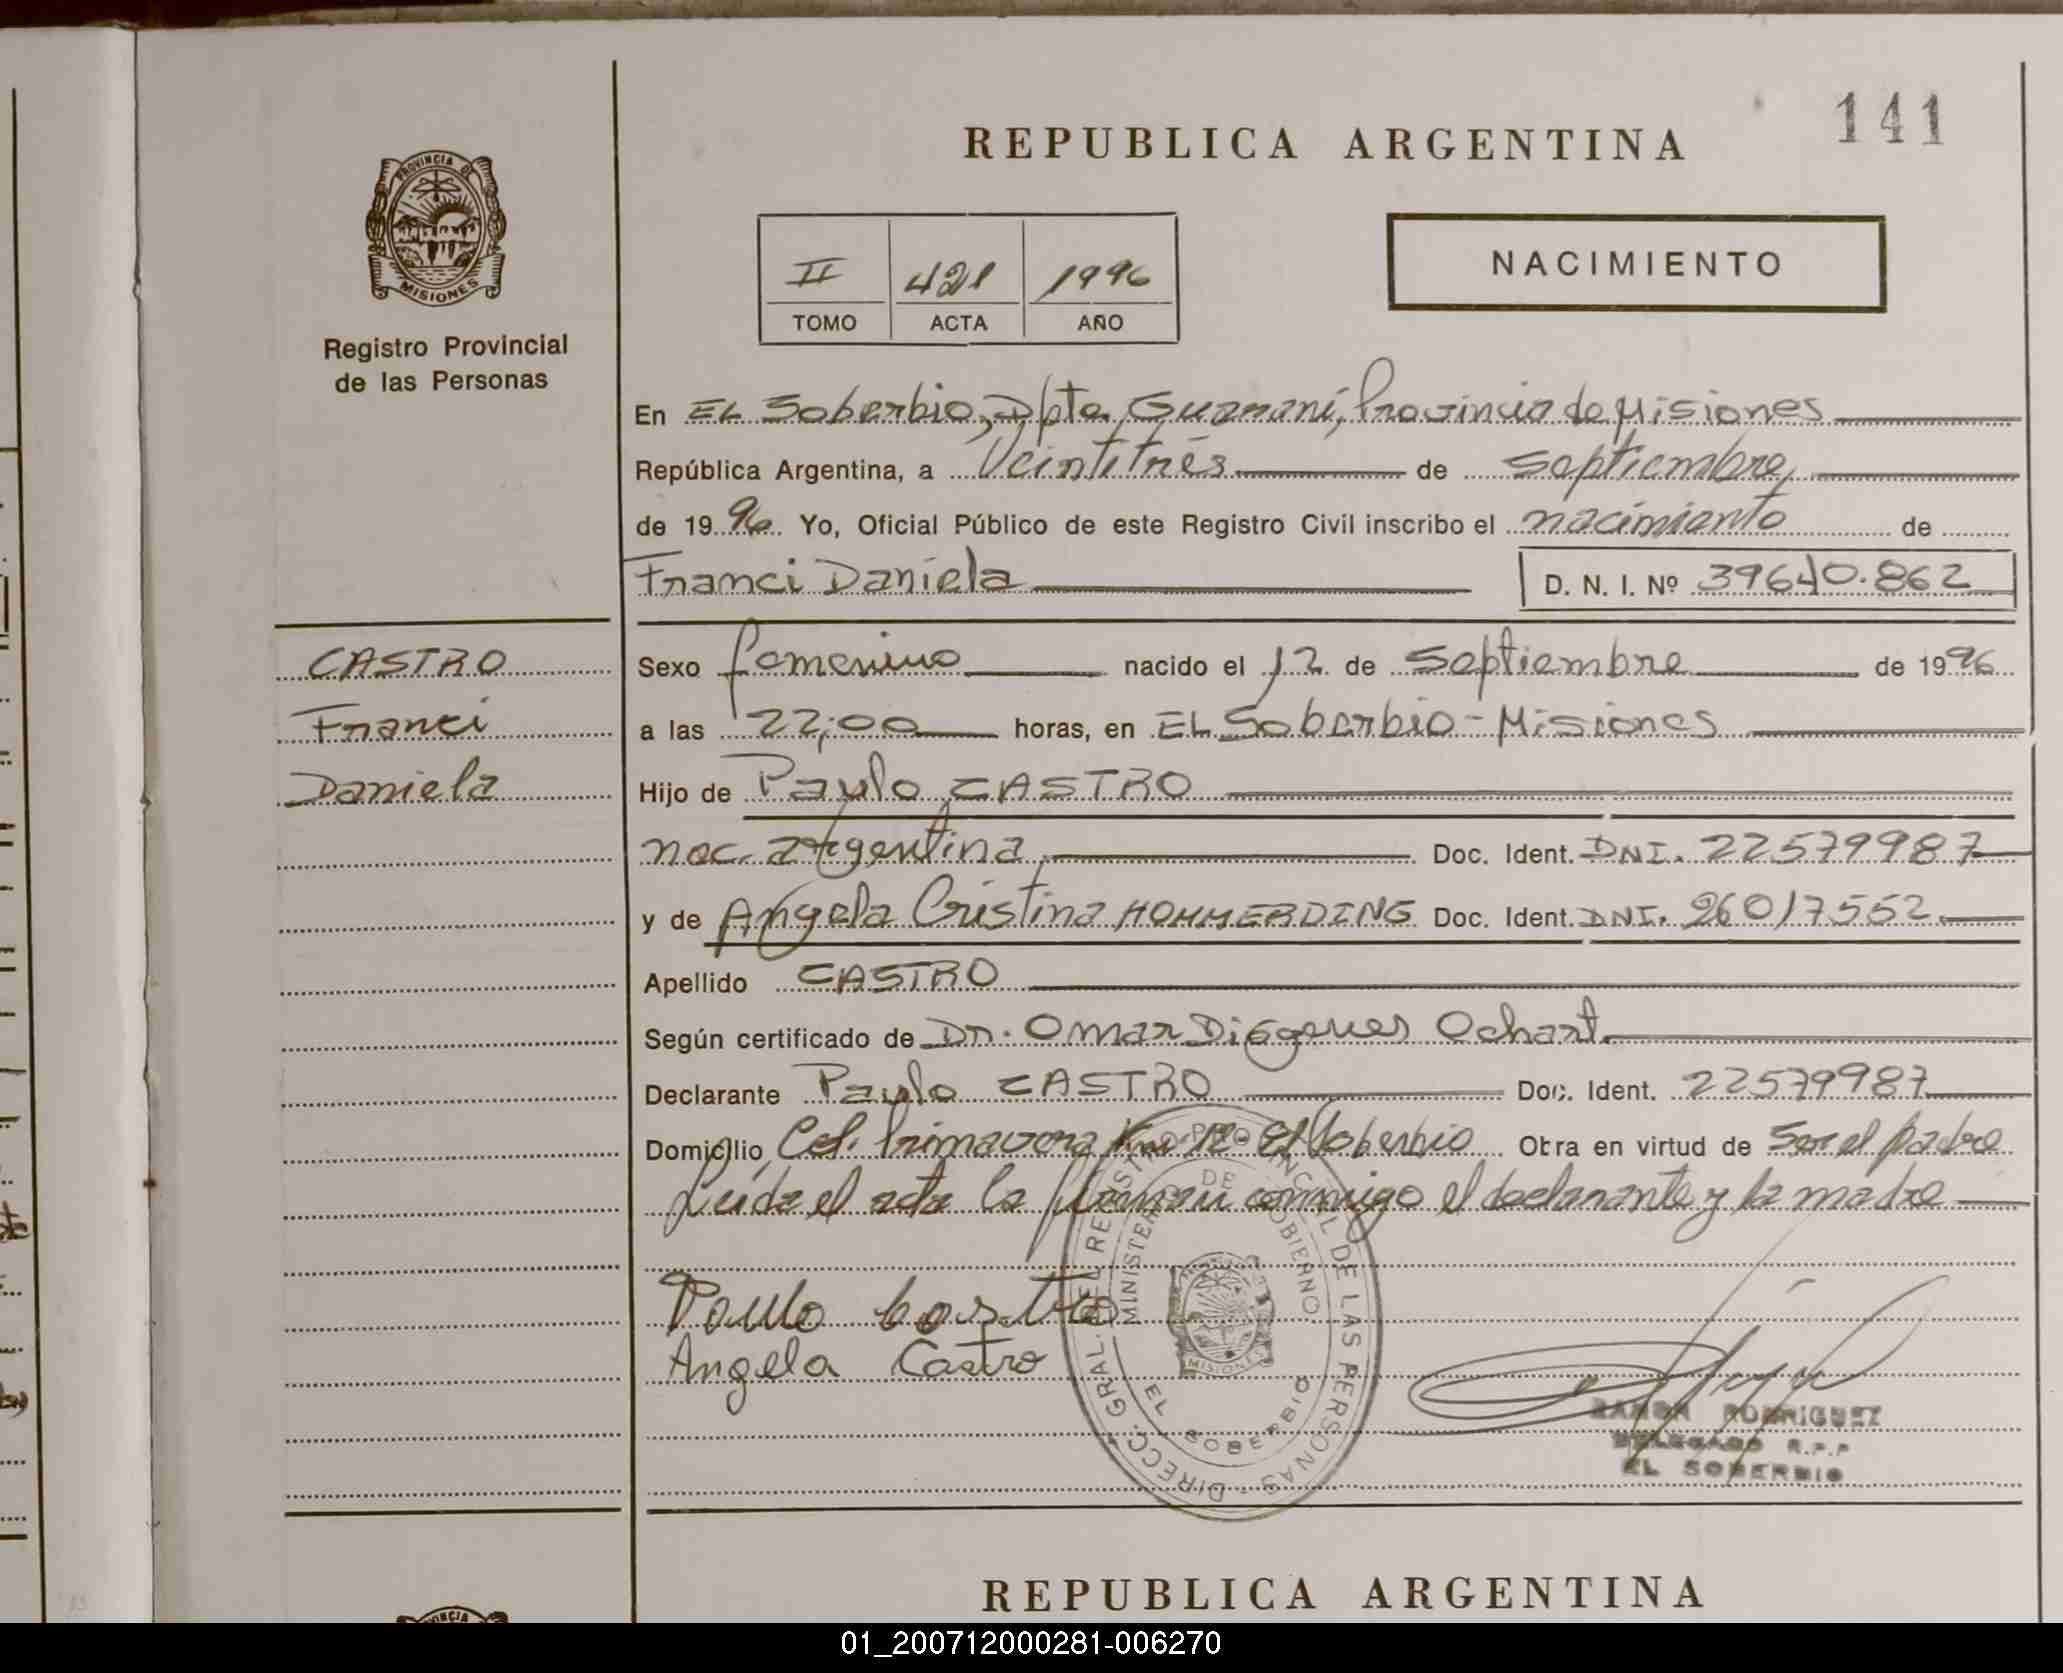 141
REPUBLICA ARGENTINA
PROVINCIA DE
MISIONES
Registro Provincial
de las Personas
NACIMIENTO
II 421 1996
TOMO ACTA AÑO
En EL Soberbio, Dpto. Guaraní, Provincia de Misiones
República Argentina, a Veintitrés de Septiembre
de 1996. Yo, Oficial Público de este Registro Civil inscribo el nacimiento de
Franci Daniela D. N. I. Nº 39640.862
CASTRO
Franci
Daniela
Sexo femenino nacido el 12 de Septiembre de 1996
a las 22;00 horas, en EL Soberbio - Misiones
Hijo de Paulo CASTRO
nac. argentina Doc. Ident. DNI. 22579987
y de Angela Cristina HOMMERDING Doc. Ident. DNI. 26017552
Apellido CASTRO
Según certificado de Dr. Omar Diógenes Ochart.
Declarante Paulo CASTRO Doc. Ident. 22579987
Domicilio Col. Primavera Km 12 - El Soberbio Obra en virtud de Ser el padre
Leída el acta la firman conmigo el declarante y la madre
Paulo Castro
Angela Castro
DIRECC. GRAL. DEL REGISTRO PROVINCIAL DE LAS PERSONAS
MINISTERIO DE GOBIERNO
MISIONES
EL SOBERBIO
RAMON RODRIGUEZ
DELEGADO R.P.P
EL SOBERBIO
REPUBLICA ARGENTINA
01_200712000281-006270